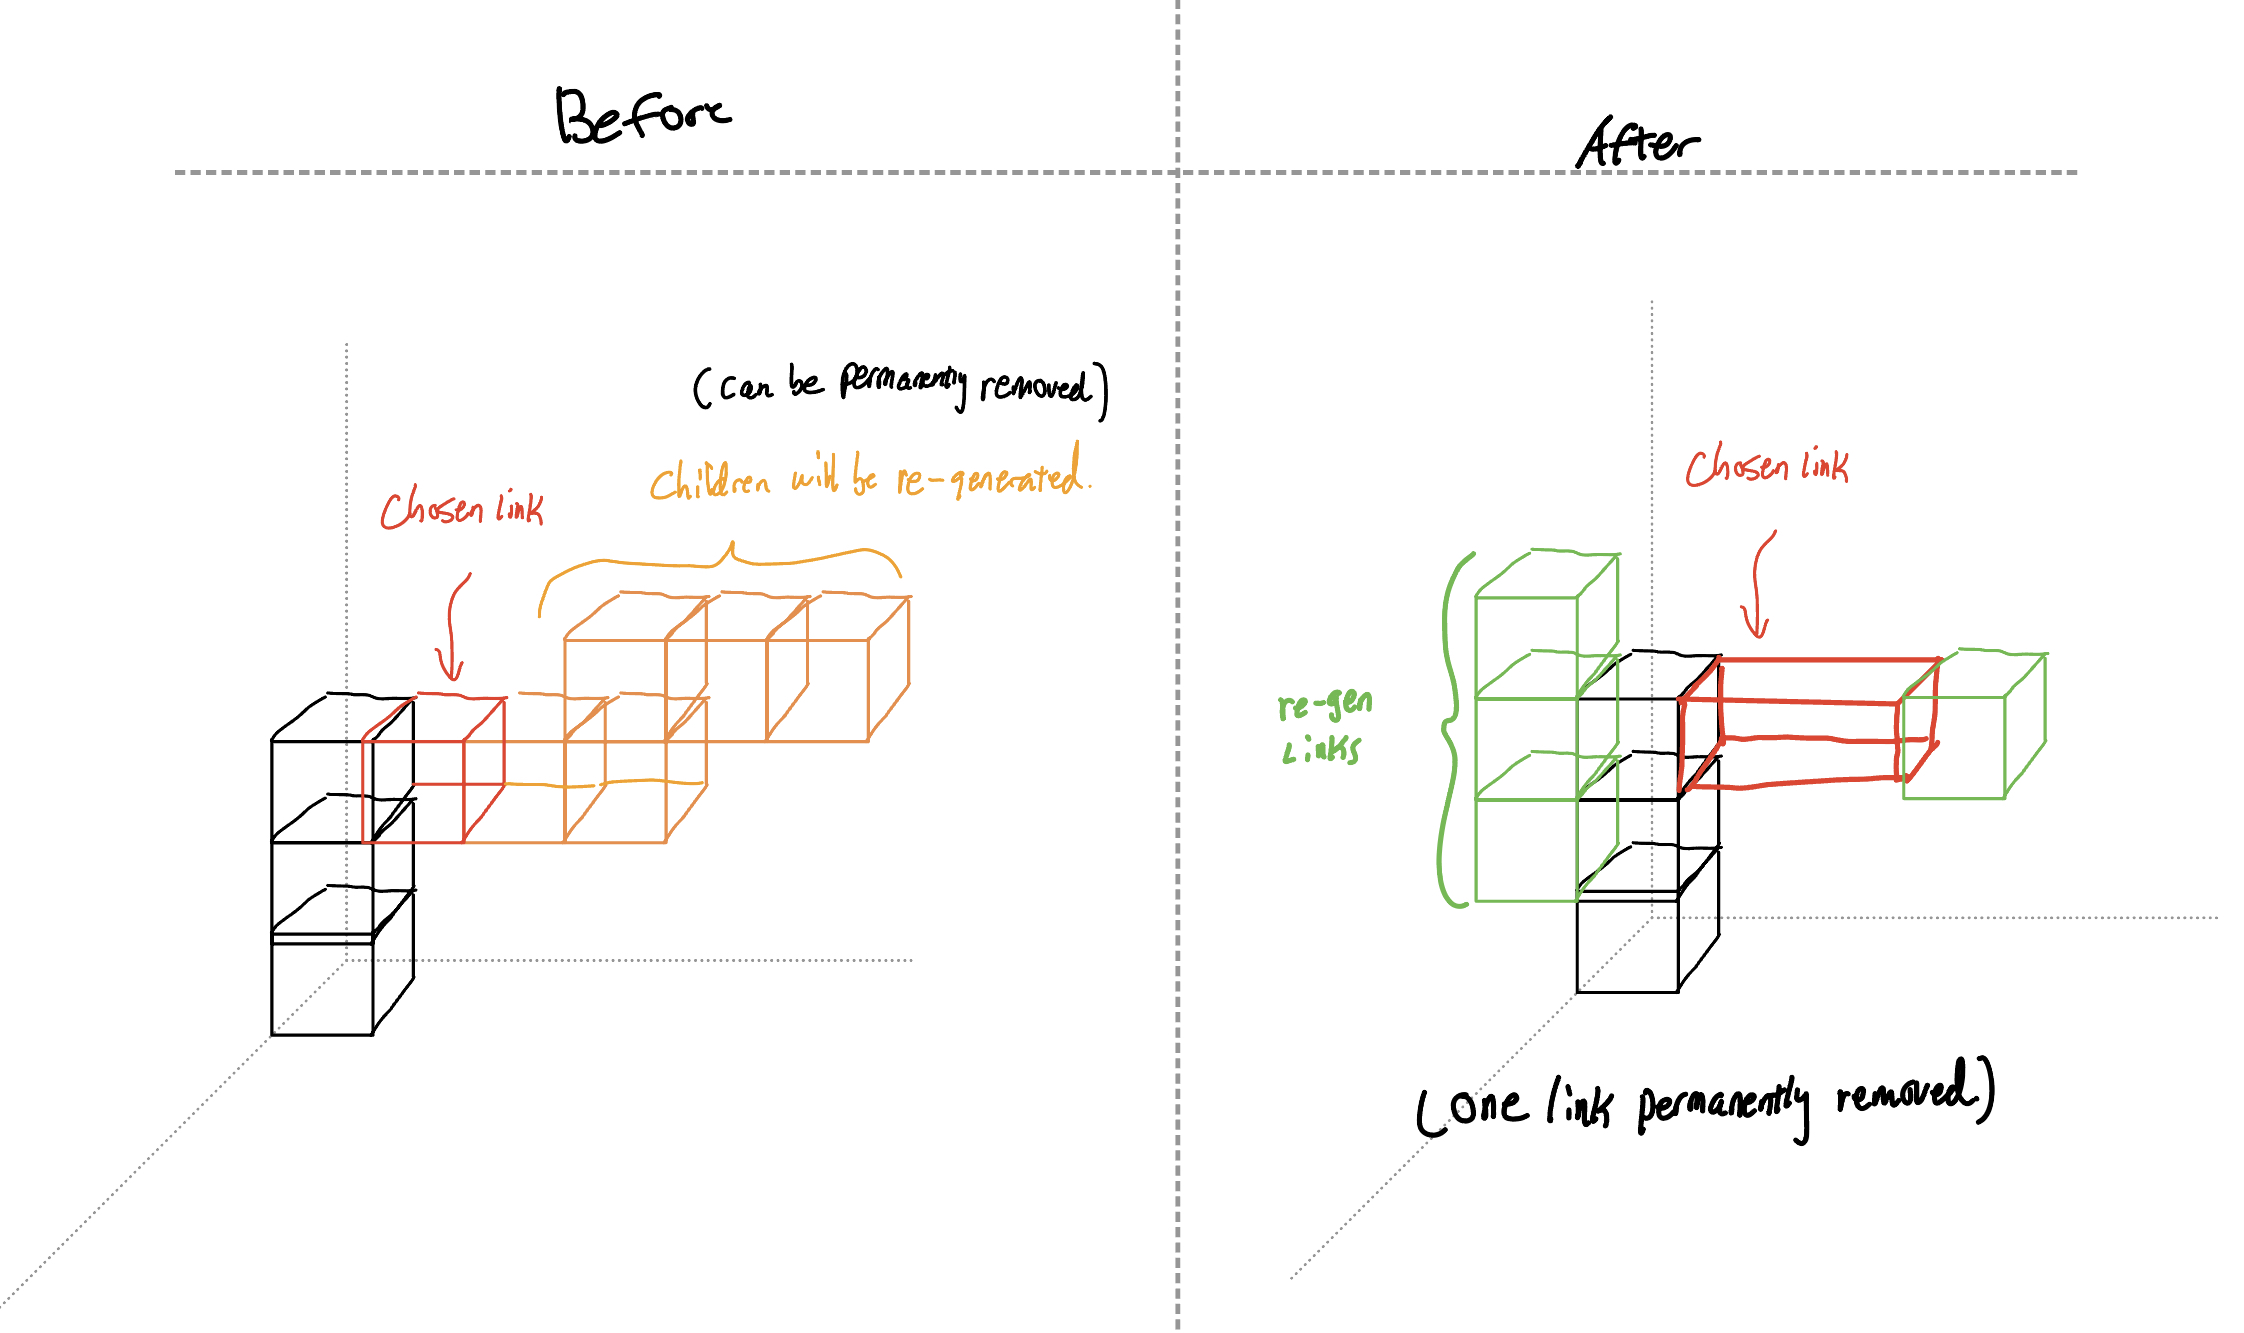 Before
After
(can be permanently removed)
Children will be re-generated.
Chosen link
Chosen link
re-gen
Links
(one link permanently removed)